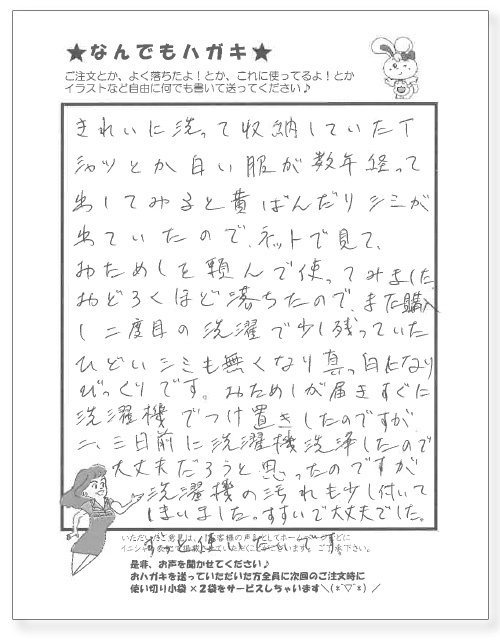 ★なんでもハガキ★
ご注文とか、よく落ちたよ！とか、これに使ってるよ！とか
イラストなど自由に何でも書いて送ってください♪
きれいに洗って収納していたT
シャツとか白い服が数年経って
出してみると黄ばんだりシミが
出ていたので、ネットで見て、
おためしを頼んで使ってみました。
おどろくほど落ちたので、また購入
し二度目の洗濯で少し残っていた
ひどいシミも無くなり真っ白になり
びっくりです。おためしが届きすぐに
洗濯機でつけ置きしたのですが
二、三日前に洗濯機洗浄したので
大丈夫だろうと思ったのですが
洗濯機の汚れも少し付いて
しまいました。すすいで大丈夫でした。
ずっと使いたいです
是非、お声を聞かせてください♪
おハガキを送っていただいた方全員に次回のご注文時に
使い切り小袋×2袋をサービスしちゃいます＼(*ˊ▽ˋ*)／